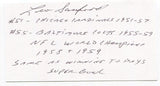 Leo Sanford
#51 - Chicago Cardinals 1951-57
#55 - Baltimore Colts 1958-59
NFL World Champions
1958 + 1959
Same as winning todays
Super Bowl